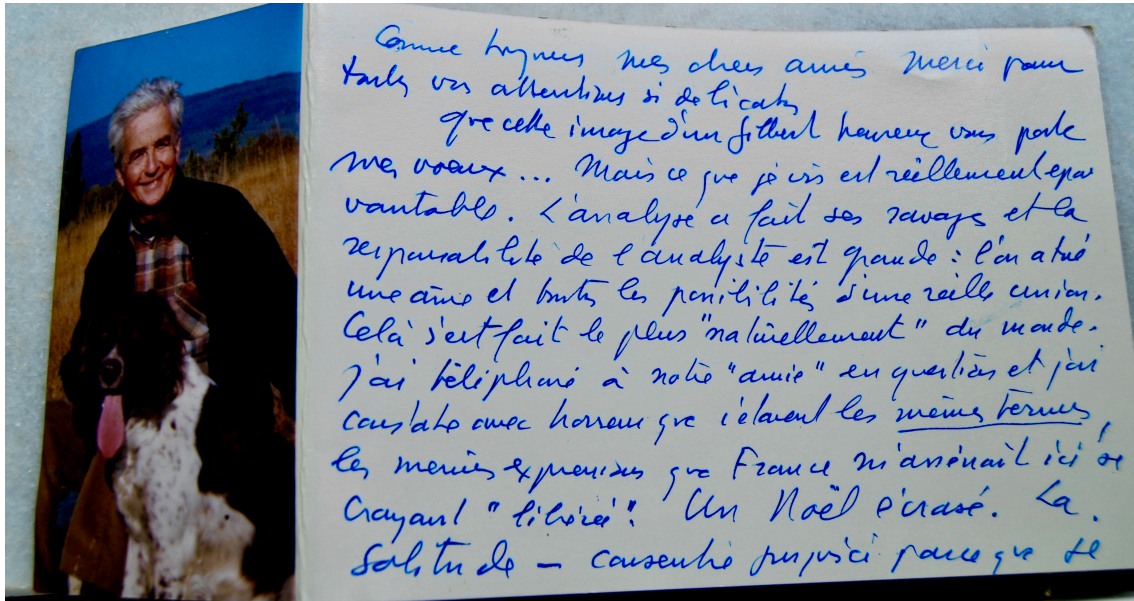 Comme toujours mes chers amis merci pour
toutes vos attentions si délicates
que cette image d'un Gilbert heureux vous porte
mes voeux... Mais ce que je vis est réellement épou
vantable. L'analyse a fait ses ravages et la
responsabilité de l'analyste est grande : l'on a tué
une âme et toutes les possibilités d'une réelle union.
Celà s'est fait le plus "naturellement" du monde.
J'ai téléphoné à notre "amie" en question et j'ai
constaté avec horreur que c'étaient les mêmes termes,
les mêmes expressions que France m'assénait ici se
croyant "libérée". Un Noël écrasé. La
Solitude – consentie jusqu'ici parce que se